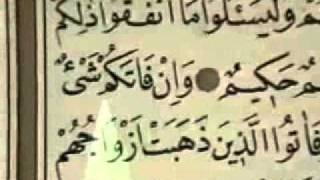 وَلْيَسْـَٔلُوا مَا اَنْفَقُوا ذٰلِكُمْ
حَكِيمٌ وَاِنْ فَاتَكُمْ شَىْءٌ
فَاٰتُوا الَّذِينَ ذَهَبَتْ اَزْوَاجُهُمْ